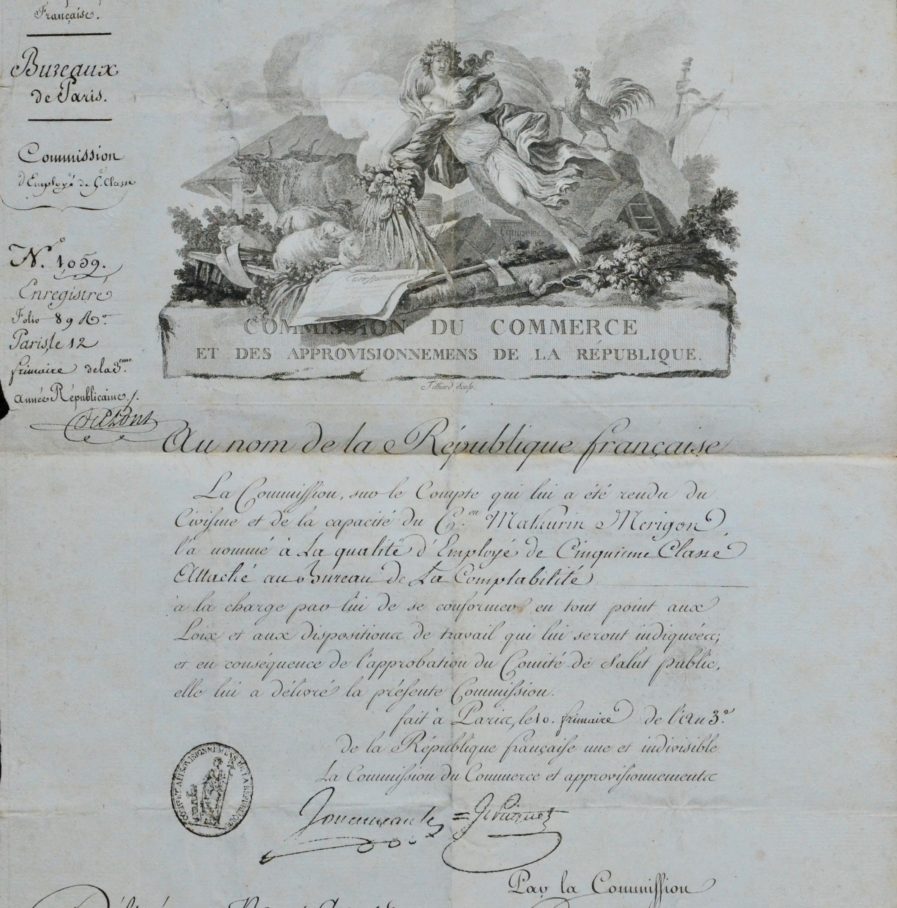 Française.
Bureaux
de Paris.
Commission
d'Employé de 5.e Classe
N.o 1059.
Enregistré
Folio 89 R.o
Paris, le 12
frimaire de la 3.eme
année Républicaine
COMMISSION DU COMMERCE
ET DES APPROVISIONNEMENS DE LA RÉPUBLIQUE.
Tilliard Sculp.
Au nom de la République française
La Commission, sur le Compte qui lui a été rendu du
Civisme et de la capacité du C.en Mathurin Merigon
l'a nommé à La qualité d'Employé de Cinquieme Classe
Attaché au Bureau de La Comptabilité
à la charge par lui de se conformer en tout point aux
Loix et aux dispositions de travail qui lui seront indiquées;
et en conséquence de l'approbation du Comité de Salut public,
elle lui a délivré la présente Commission.
fait à Paris, le 10. frimaire de l'An 3.e
de la République française une et indivisible
La Commission du Commerce et approvisionnements
Par la Commission